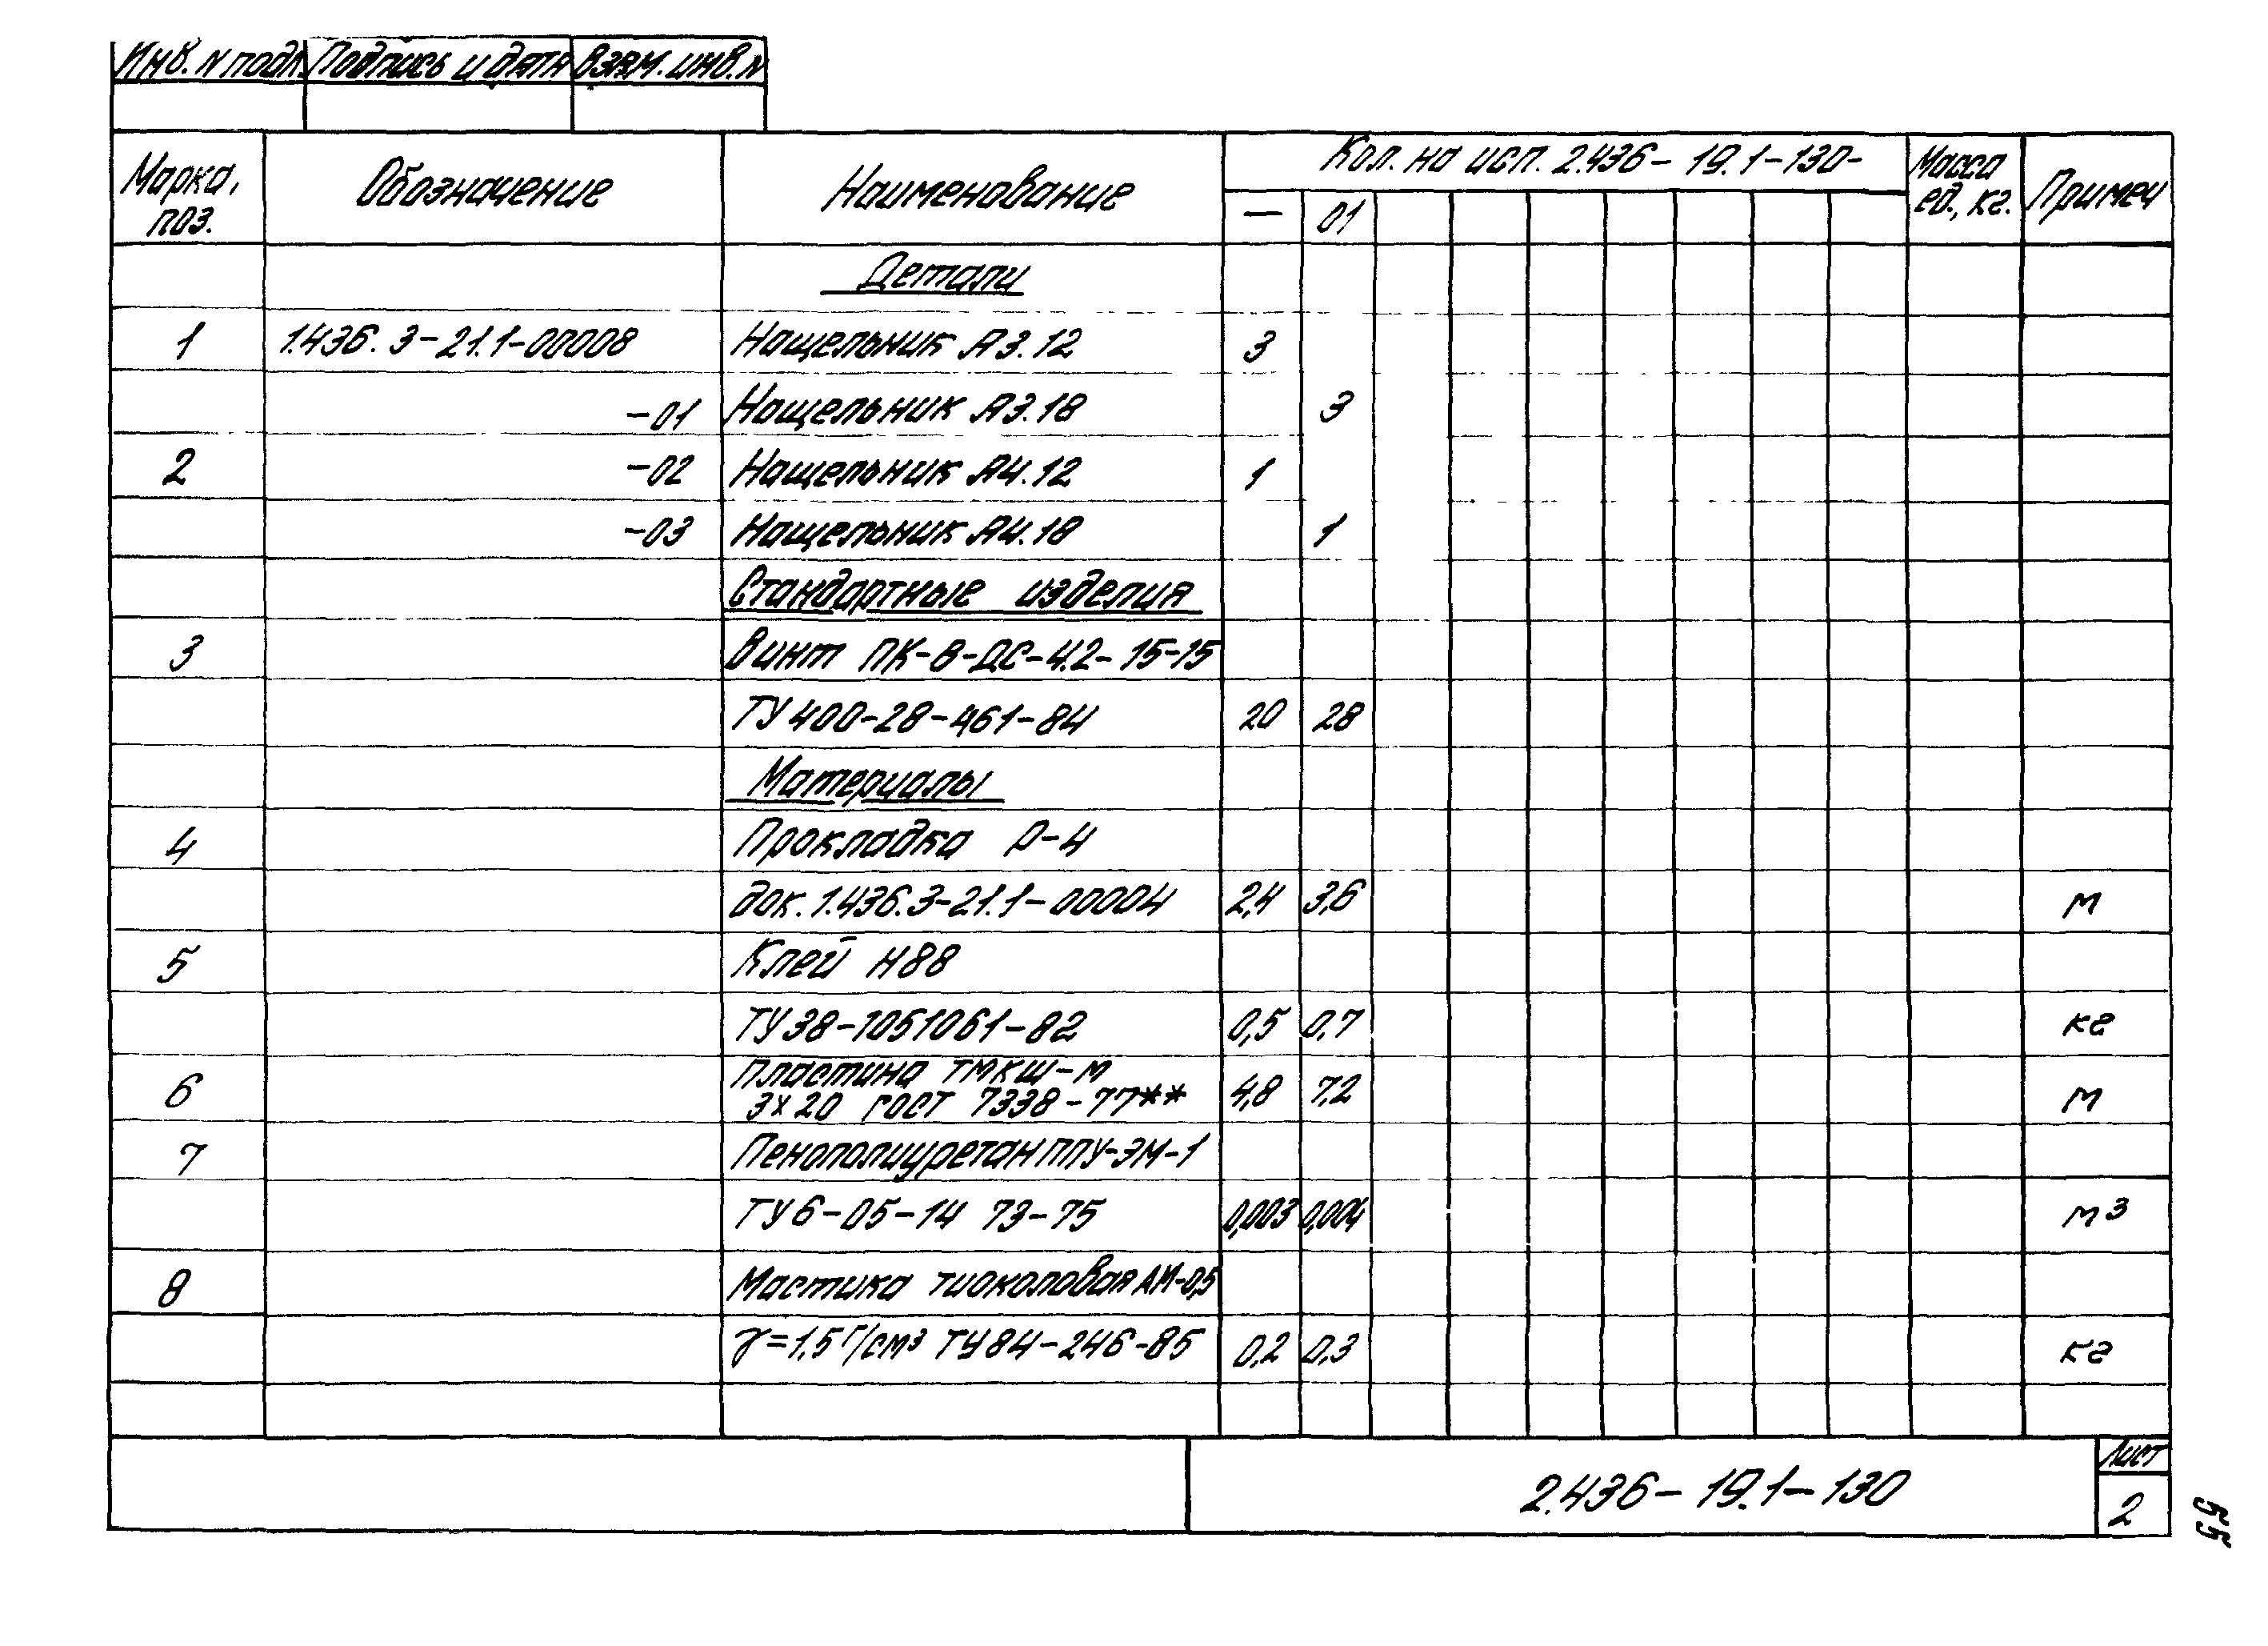 Инв. N подл. Подпись и дата Взам. инв. N
Марка, поз. Обозначение Наименование Кол. на исп. 2.436-19.1-130- Масса ед., кг. Примеч
— 01
Детали
1 1.436.3-21.1-00008 Нащельник А3.12 3
-01 Нащельник А3.18 3
2 -02 Нащельник А4.12 1
-03 Нащельник А4.18 1
Стандартные изделия
3 Винт ПК-В-ДС-4.2-15-15
ТУ 400-28-461-84 20 28
Материалы
4 Прокладка Р-4
док. 1.436.3-21.1-00004 2,4 3,6 м
5 Клей Н88
ТУ 38-1051061-82 0,5 0,7 кг
6 Пластина ТМКЩ-М
3х20 ГОСТ 7338-77** 4,8 7,2 м
7 Пенополиуретан ППУ-ЭМ-1
ТУ 6-05-14 73-75 0,003 0,004 м³
8 Мастика тиоколовая АМ-0,5
γ=1,5 Г/см³ ТУ 84-246-85 0,2 0,3 кг
2.436-19.1-130
Лист
2
55